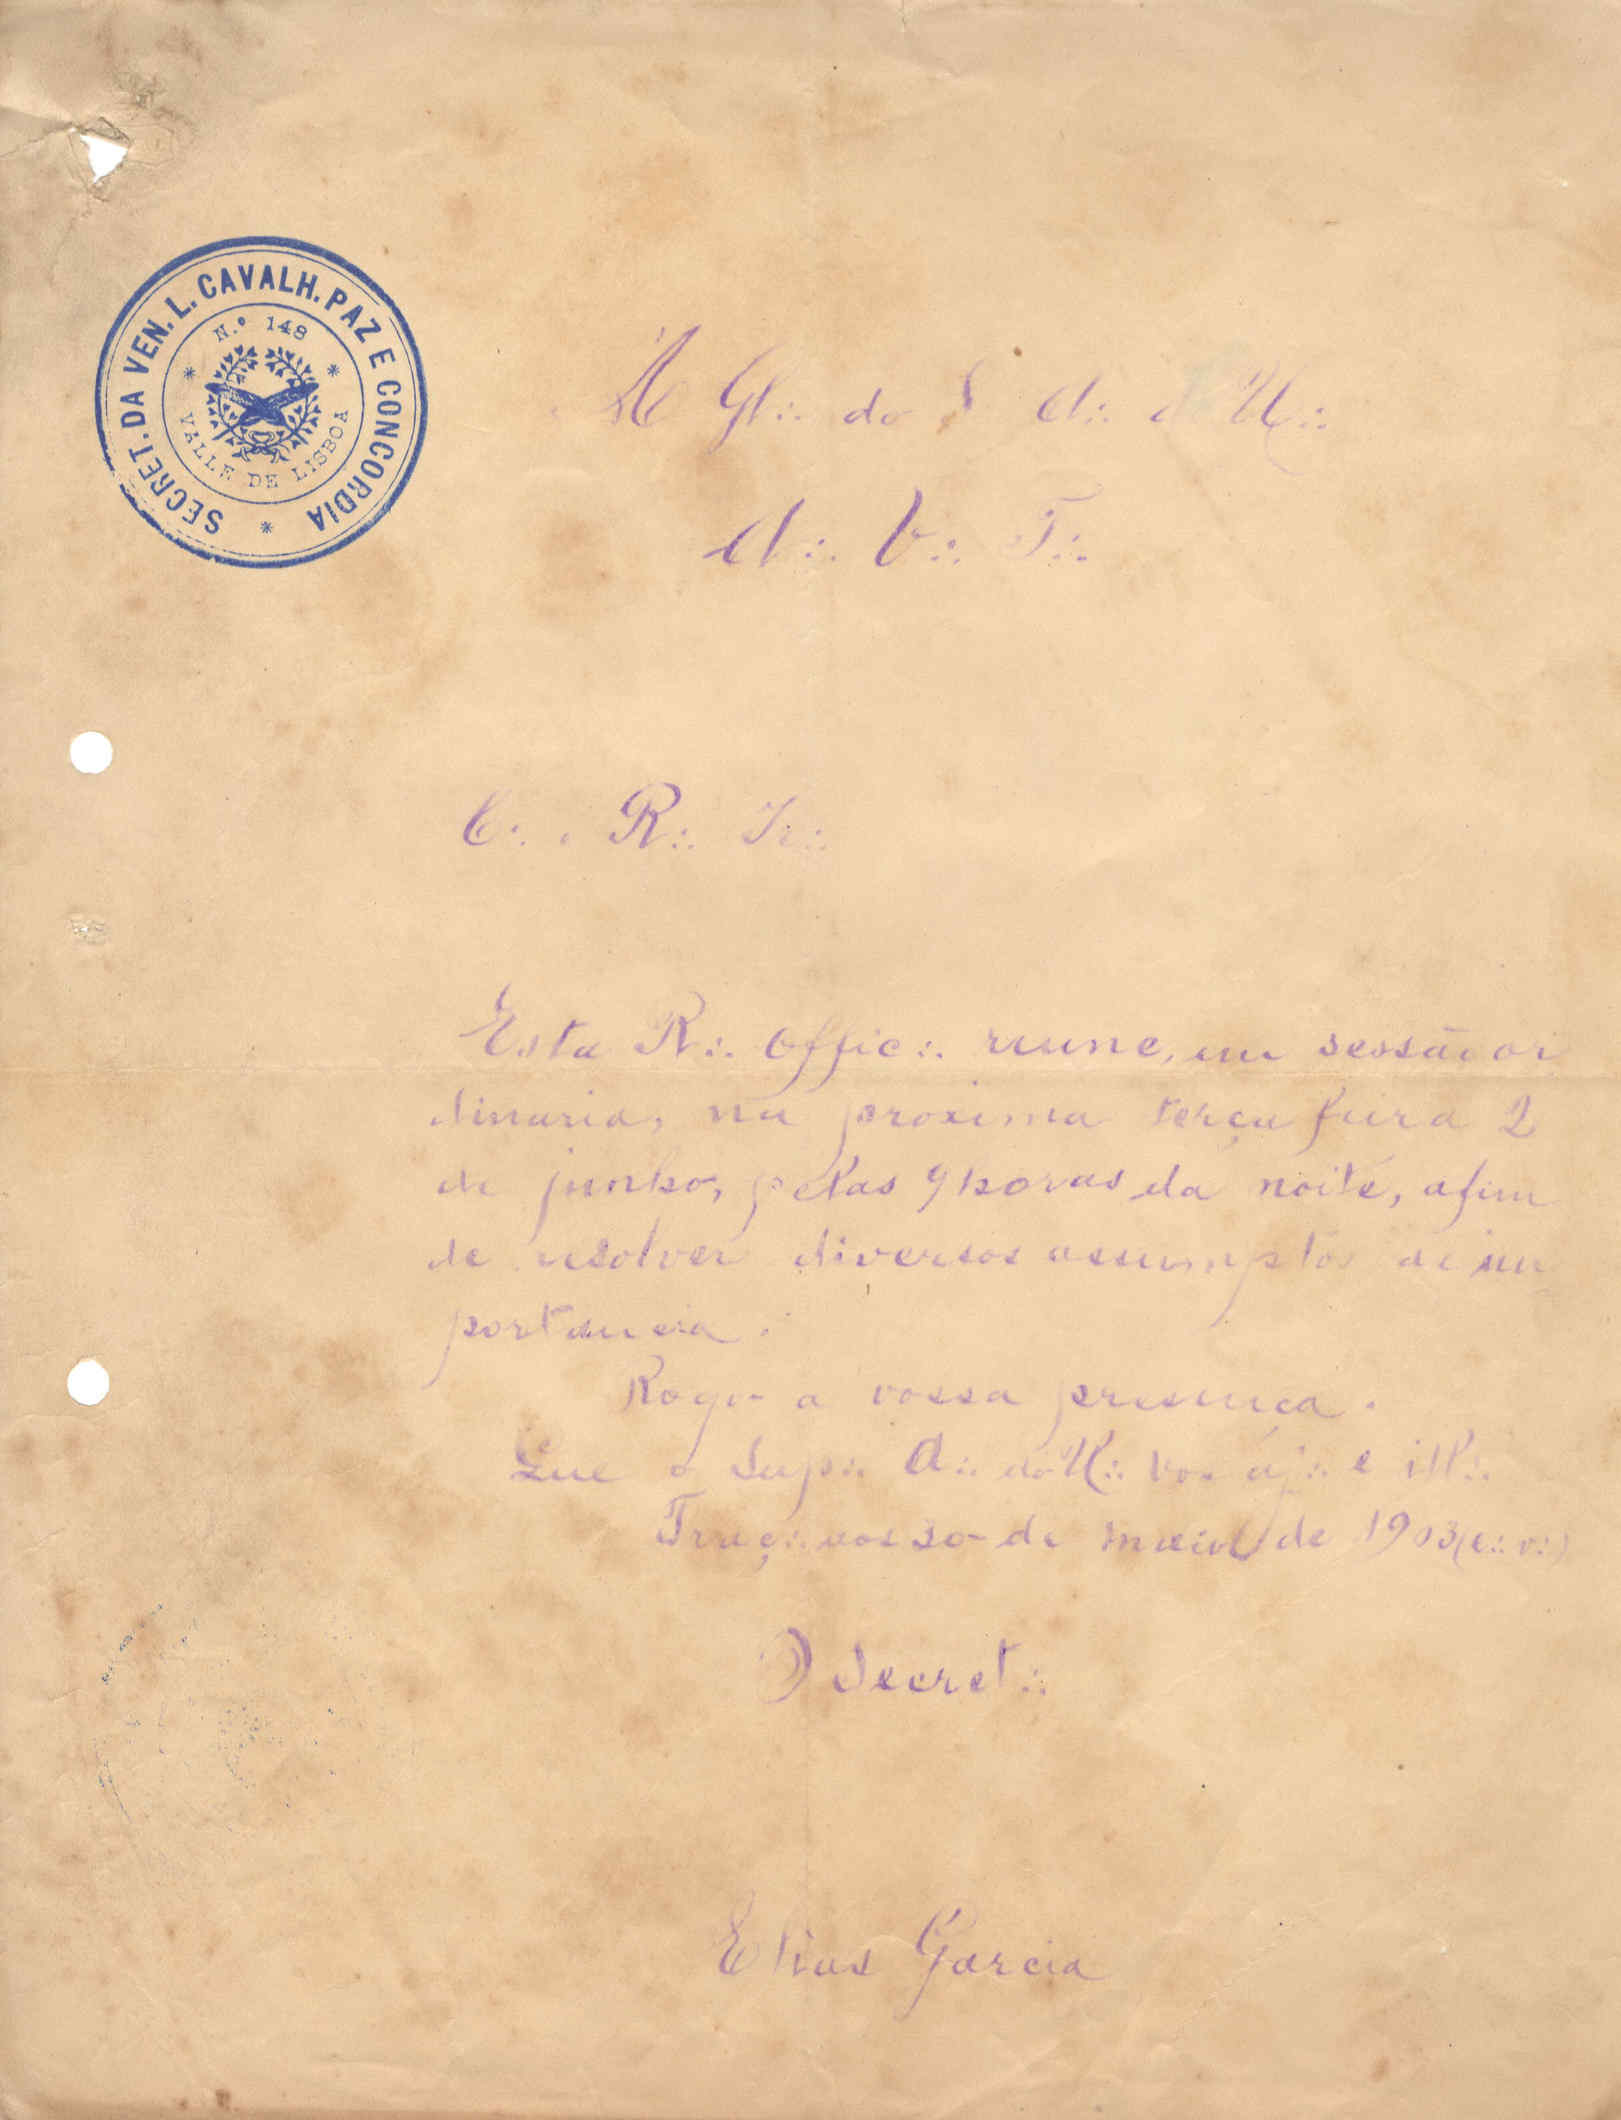 SECRET. DA VEN. L. CAVALH. PAZ E CONCORDIA
N.º 148
VALLE DE LISBOA
A Gl∴ do S A∴ d U∴
A∴ V∴ T∴
C∴ R∴ Ir∴
Esta R∴ Offic∴ reune, em sessão or
dinaria, na proxima terça feira 2
de junho, pelas 9 horas da noite, afim
de resolver diversos assumptos de im
portancia.
Rogo a vossa presença.
Que o Sup∴ A∴ do U∴ vos aj∴ e ill∴
Traç∴ aos 30 de maio de 1903 (e∴ v∴)
O Secret∴
Elias Garcia